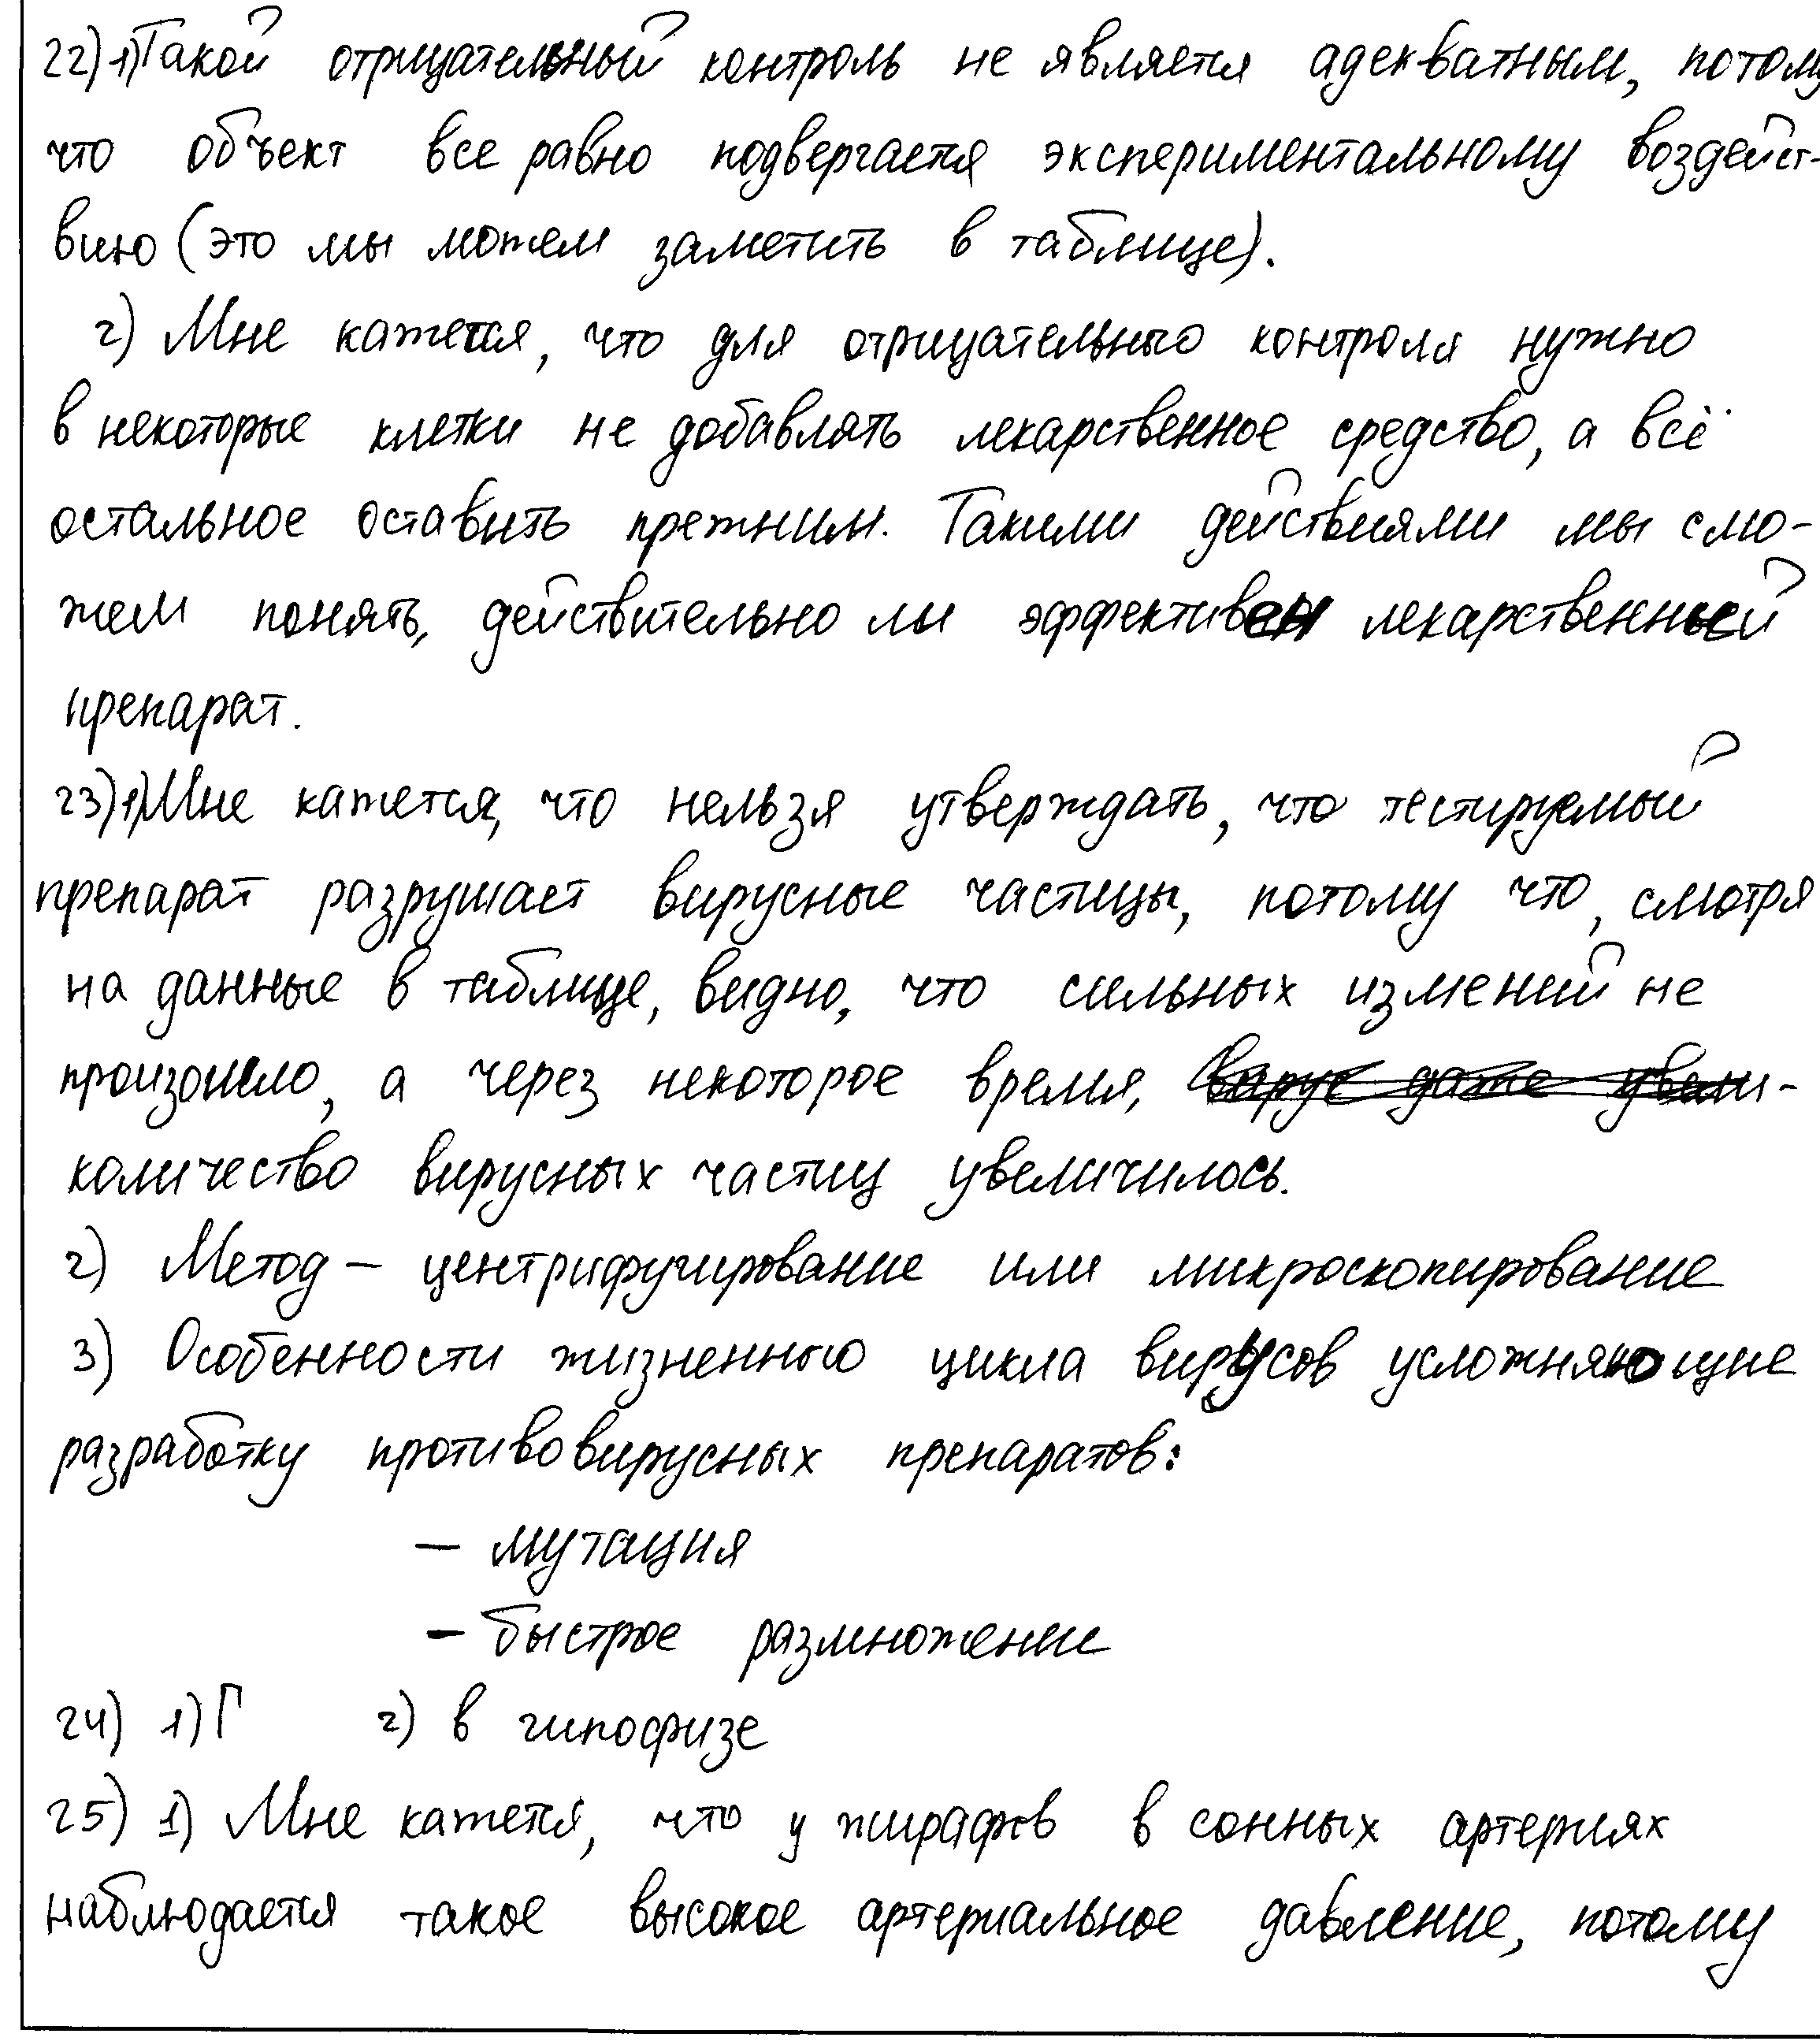 22) 1) Такой отрицательный контроль не является адекватным, потому
что объект все равно подвергается экспериментальному воздейст-
вию (это мы можем заметить в таблице).
2) Мне кажется, что для отрицательного контроля нужно
в некоторые клетки не добавлять лекарственное средство, а всё
остальное оставить прежним. Такими действиями мы смо-
жем понять, действительно ли эффективен лекарственный
препарат.
23) 1) Мне кажется, что нельзя утверждать, что тестируемый
препарат разрушает вирусные частицы, потому что, смотря
на данные в таблице, видно, что сильных измений не
произошло, а через некоторое время, ~~вирус даже увели-~~
количество вирусных частиц увеличилось.
2) Метод – центрифугирование или микроскопирование
3) Особенности жизненного цикла вирусов усложняющие
разработку противовирусных препаратов:
– мутация
– быстрое размножение
24) 1) Г 2) в гипофизе
25) 1) Мне кажется, что у жирафов в сонных артериях
наблюдается такое высокое артериальное давление, потому